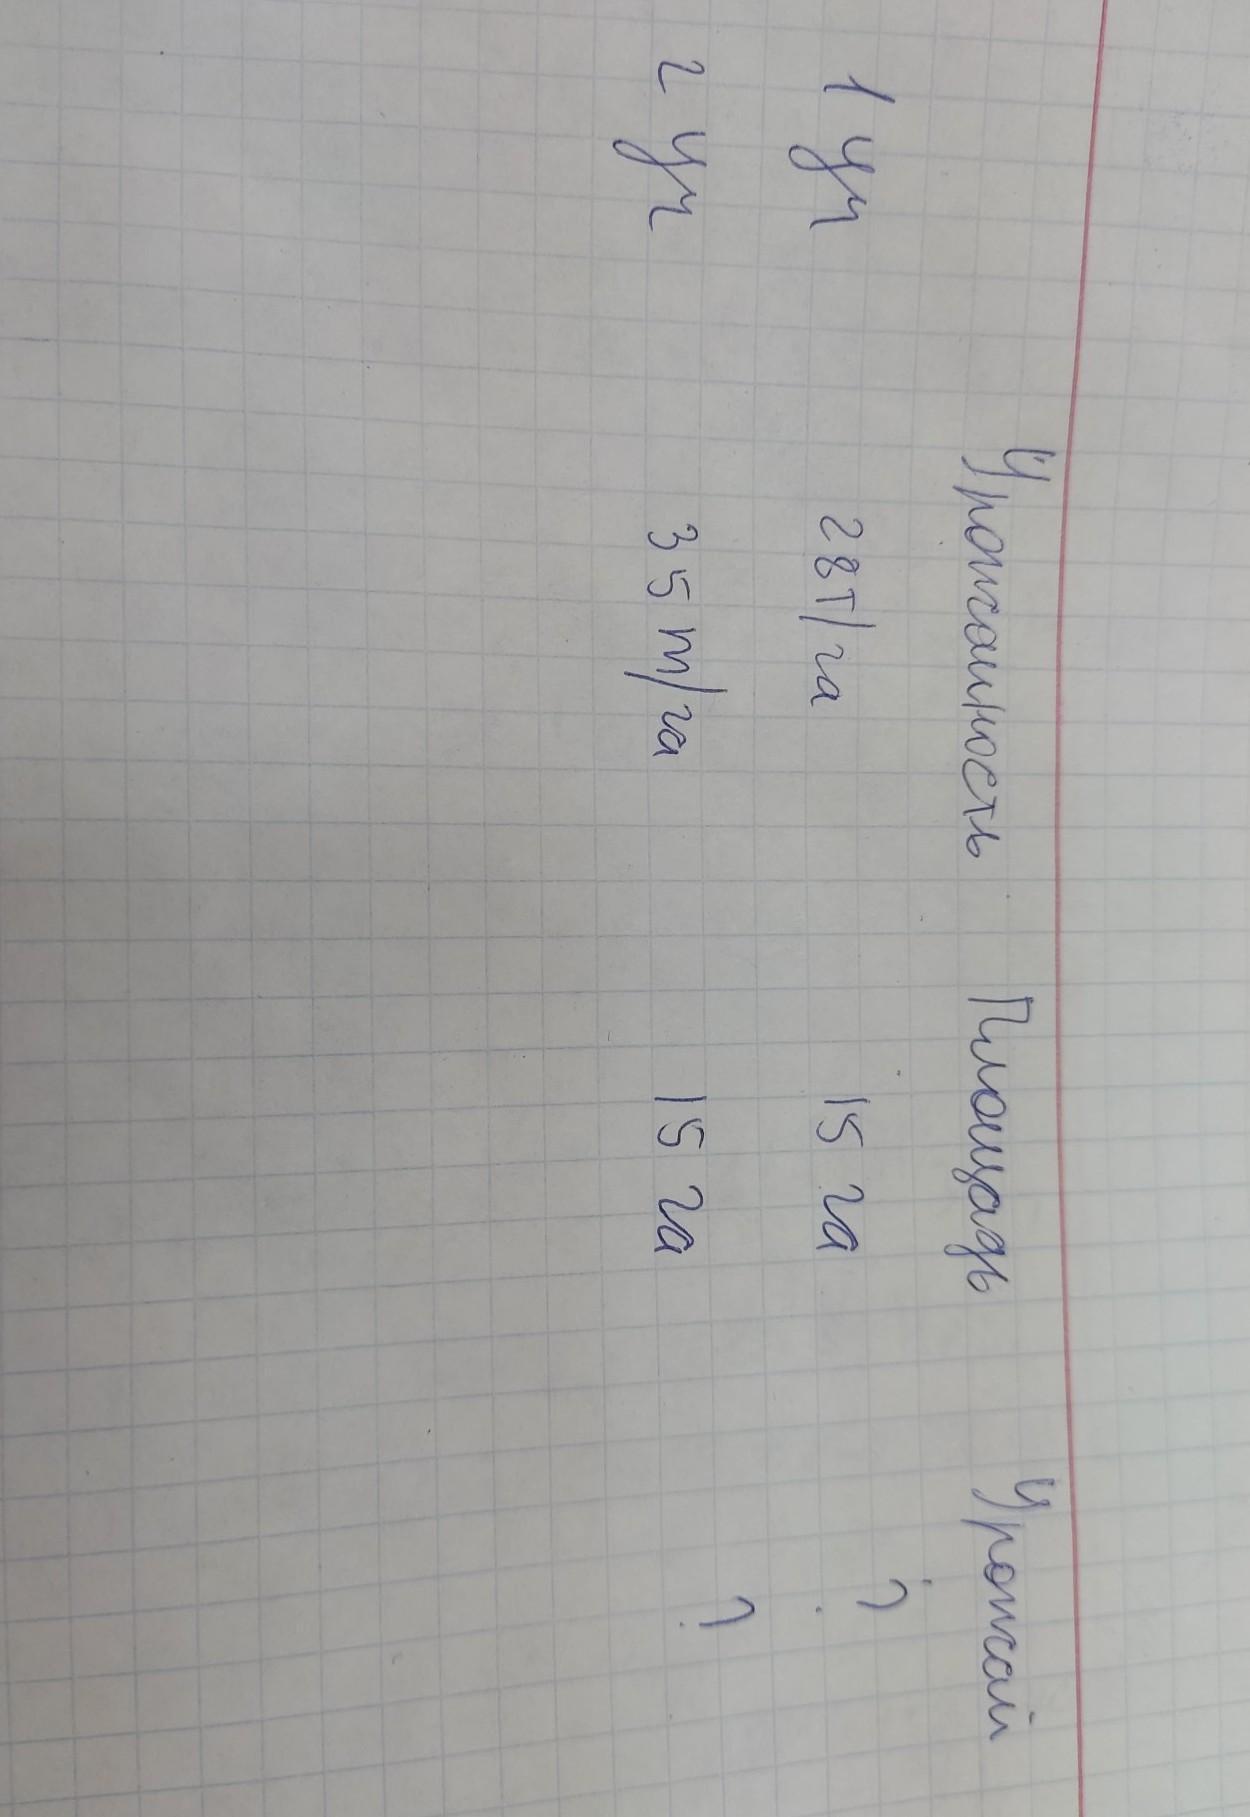 Урожайность Площадь Урожай
1 уч 28т/га 15 га ?
2 уч 35 т/га 15 га ?